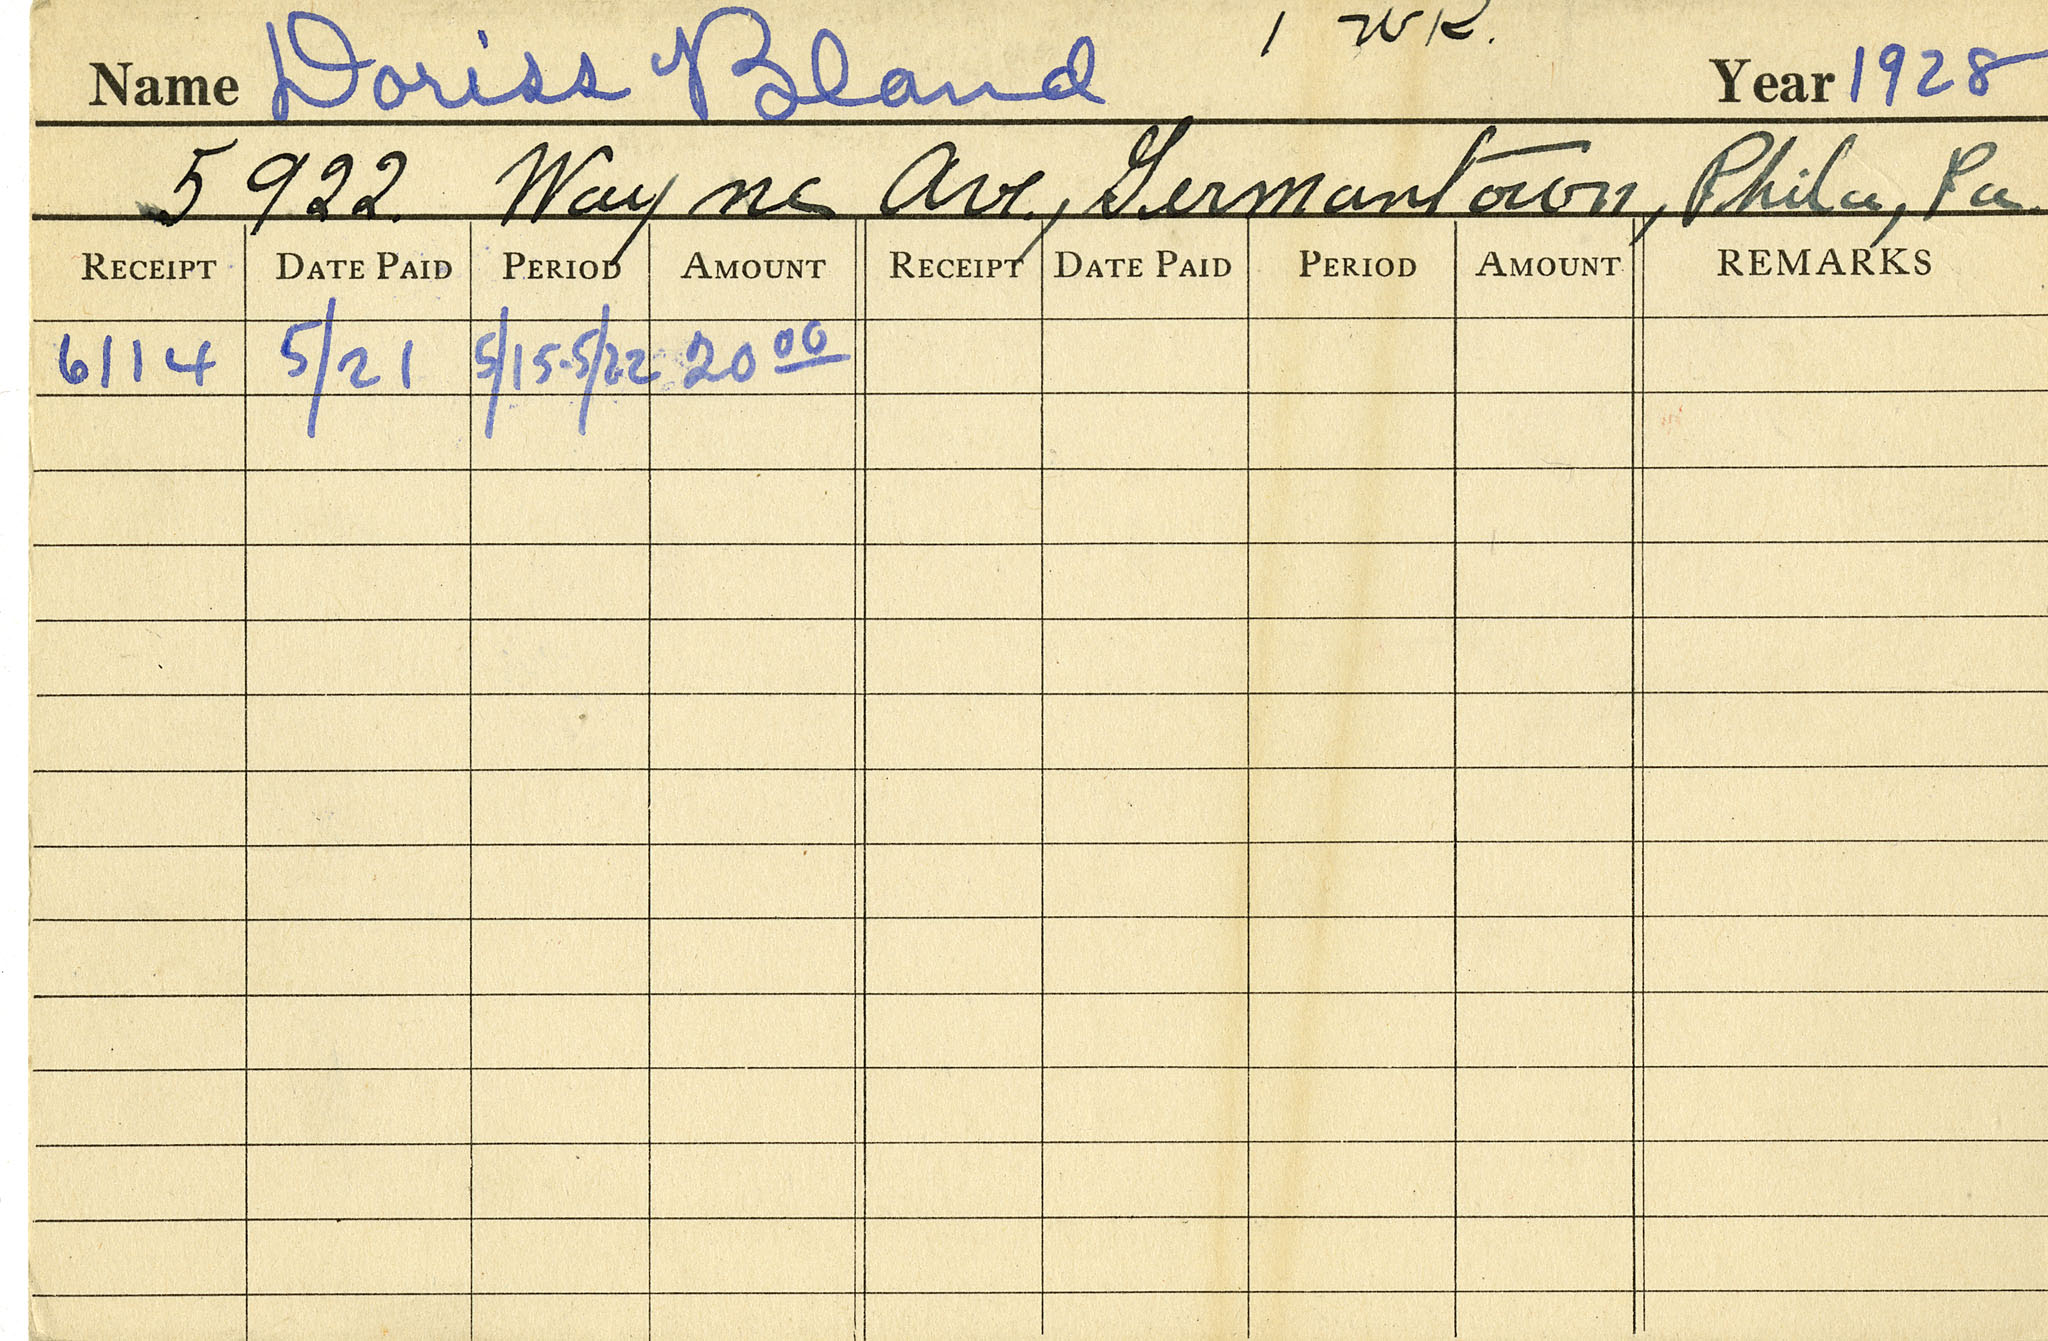 1 WK.
Name Doriss Bland Year 1928
5922 Wayne Ave., Germantown, Phila, Pa.
RECEIPT DATE PAID PERIOD AMOUNT RECEIPT DATE PAID PERIOD AMOUNT REMARKS
6114 5/21 5/15-5/22 20 00